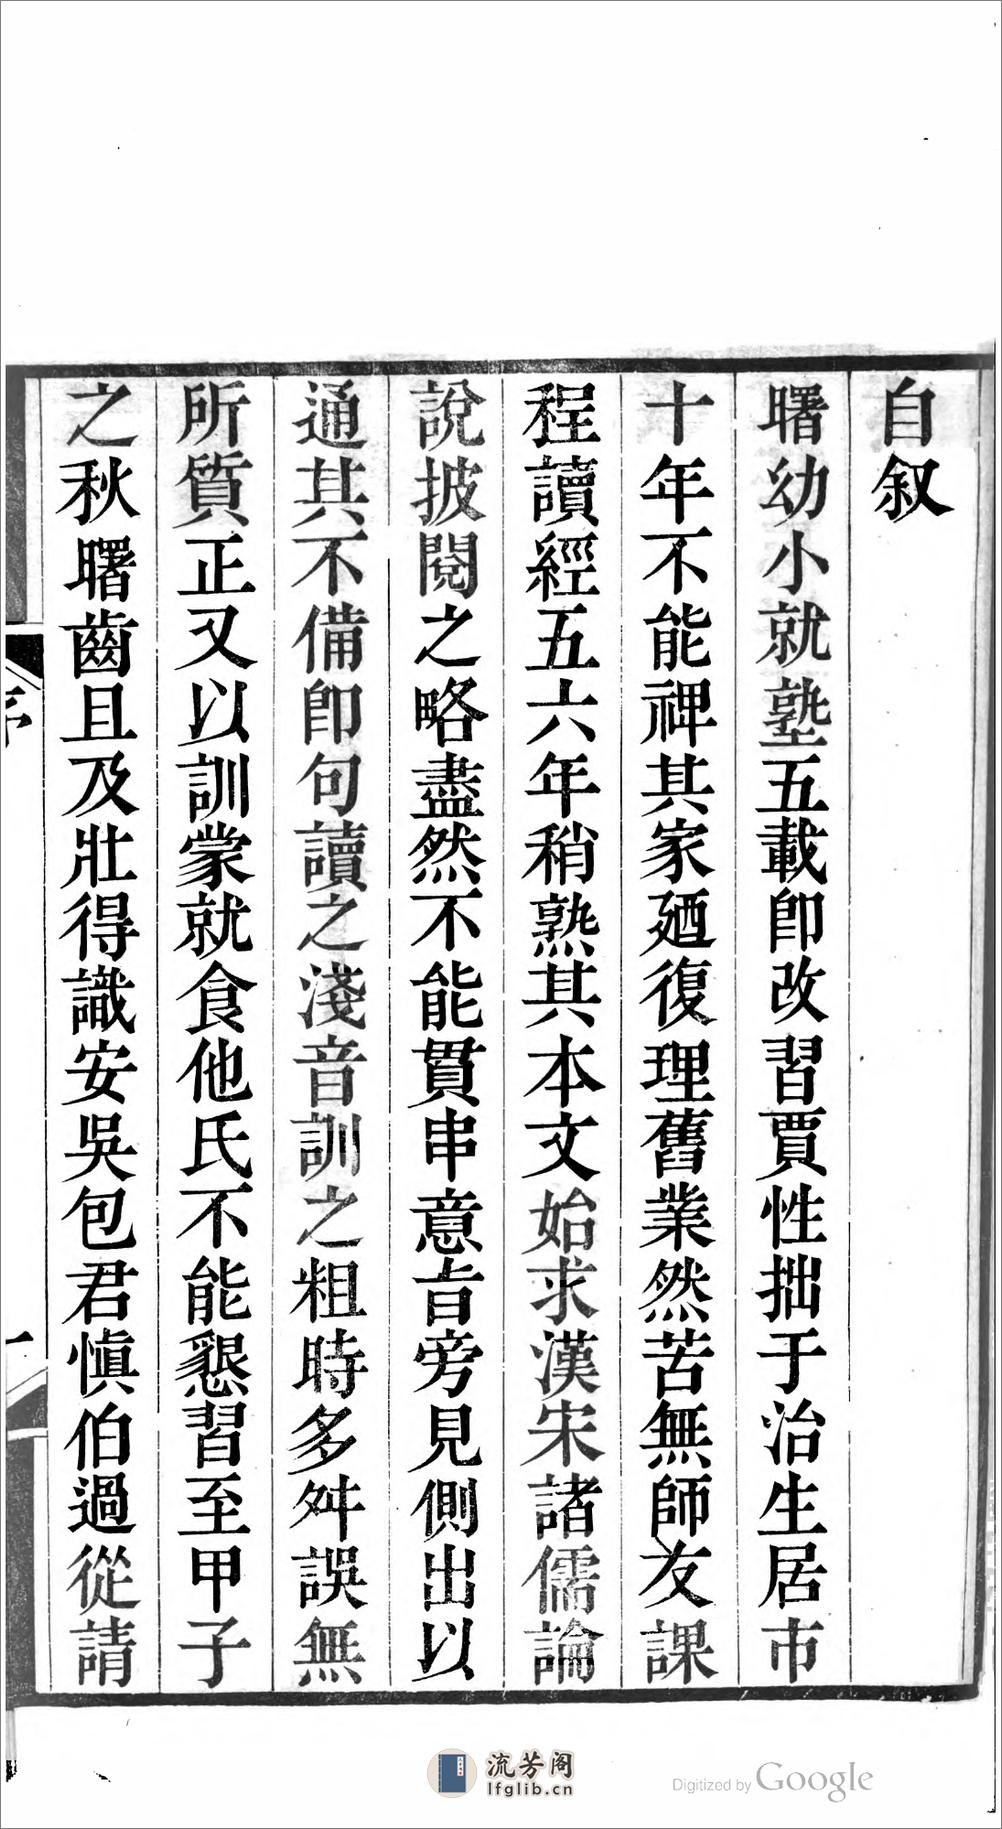 自叙
曙幼小就塾五載卽改習賈性拙于治生居市
十年不能裨其家廼復理舊業然苦無師友課
程讀經五六年稍熟其本文始求漢宋諸儒論
說披閱之略盡然不能貫串意旨旁見側出以
通其不備卽句讀之淺音訓之粗時多舛誤無
所質正又以訓蒙就食他氏不能懇習至甲子
之秋曙齒且及壯得識安吳包君愼伯過從請
序
一
流芳阁
lfglib.cn
Digitized by Google